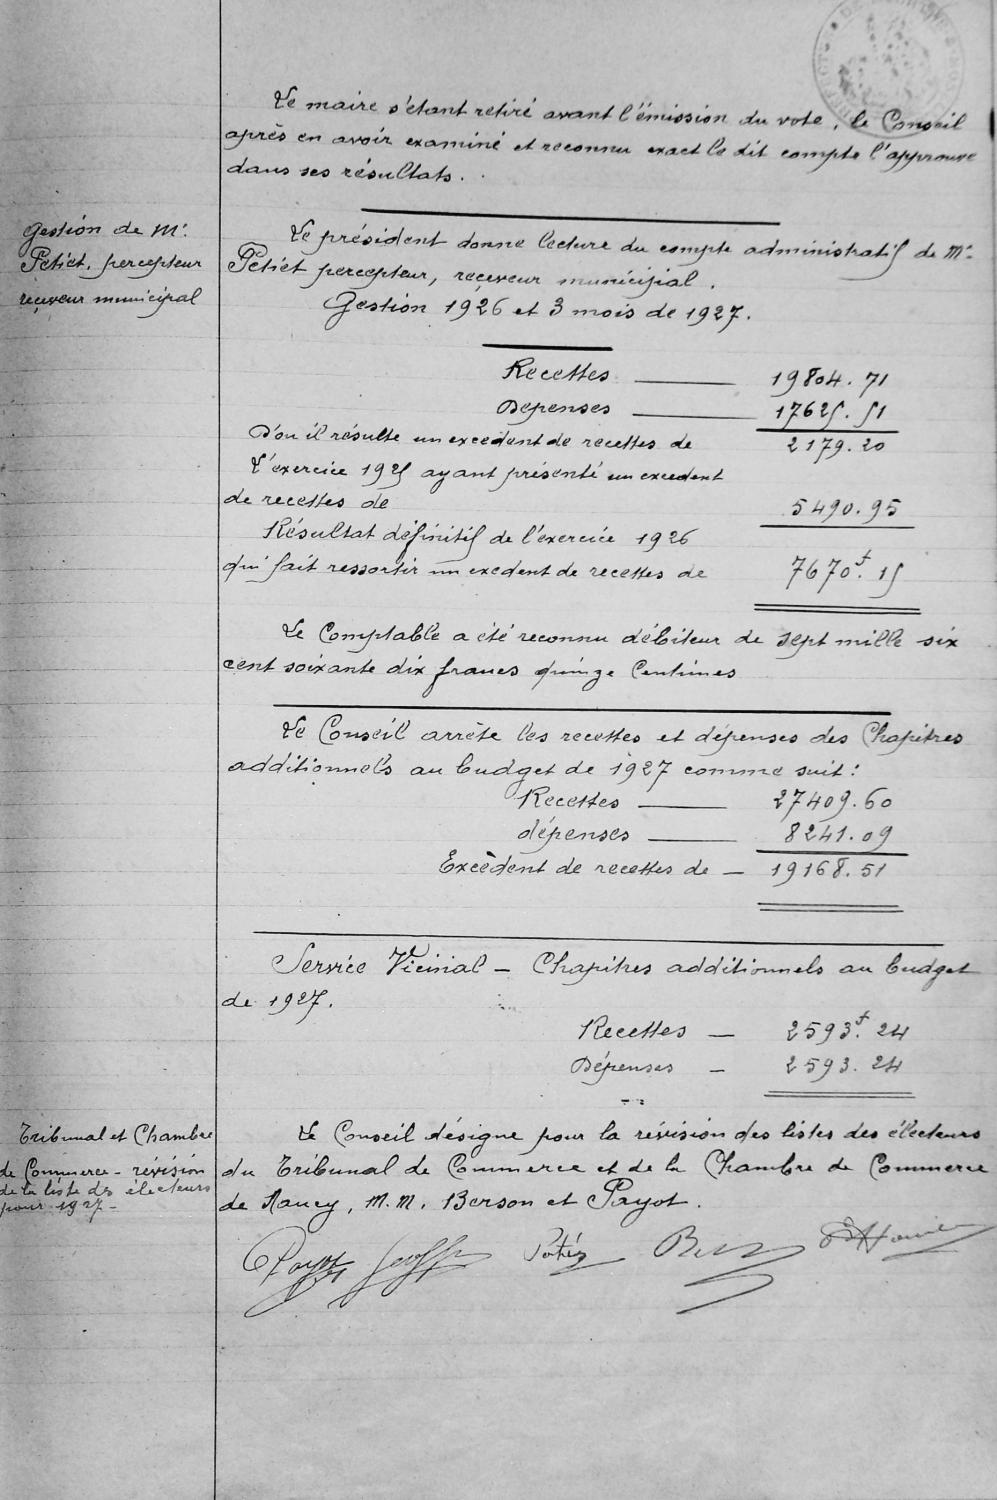 Le maire s'étant retiré avant l'émission du vote, le Conseil
après en avoir examiné et reconnu exact le dit compte l'approuve
dans ses résultats.
Gestion de Mr.
Petiet, percepteur
receveur municipal
Le président donne lecture du compte administratif de Mr.
Petiet percepteur, receveur municipal.
Gestion 1926 et 3 mois de 1927.
Recettes 19804.71
Dépenses 17625.51
D'ou il résulte un excedent de recettes de 2179.20
L'exercice 1925 ayant présenté un excedent
de recettes de 5490.95
Résultat définitif de l'exercice 1926
qui fait ressortir un exedent de recettes de 7670f.15
Le Comptable a été reconnu débiteur de sept mille six
cent soixante dix francs quinze Centimes
Le Conseil arrête les recettes et dépenses des Chapitres
additionnels au budget de 1927 comme suit :
Recettes 27409.60
dépenses 8241.09
Excèdent de recettes de — 19168.51
Service Vicinal — Chapitres additionnels au budget
de 1927.
Recettes — 2593f.24
Dépenses — 2593.24
Tribunal et Chambre
de Commerce - révision
de la liste des électeurs
pour 1927 -
Le Conseil désigne pour la révision des listes des électeurs
du Tribunal de Commerce et de la Chambre de Commerce
de Nancy, M.M. Berson et Payot.
Payot